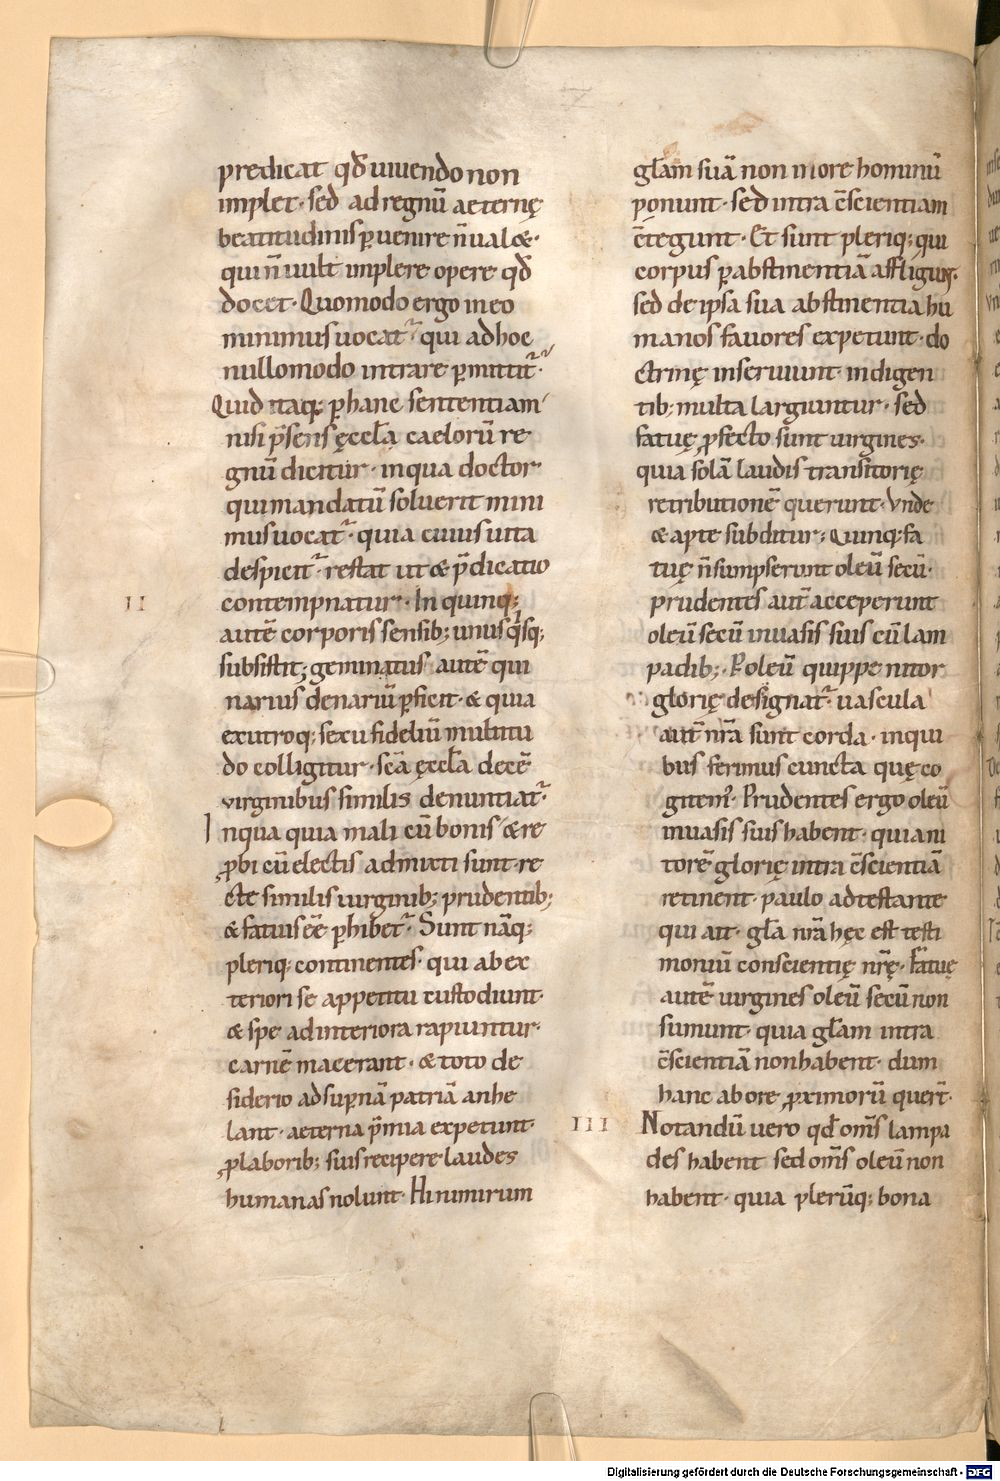 predicat qđ uiuendo non
implet· sed ad regnū aeternę
beatitudinis ꝑuenire n̄ ual&·
qui n̄ uult implere opere qđ
docet· Quomodo ergo in eo
minimus uocat᷑ qui ad hoc
nullomodo intrare ꝑmittit᷑·
Quid itaq; ꝑ hanc sententiam
nisi p̄sens ęccła caelorū re
gnū dicitur· in qua doctor
qui mandatū soluerit mini
mus uocat᷑· quia cuius uita
despicit᷑· restat ut & p̄dicatio
contempnatur· In quinq;
II
autē corporis sensib; unusq̄sq;
subsistit; geminatus autē qui
narius denariū ꝑficit· & quia
ex utroq; sexu fideliū multitu
do colligitur· sc̄a ęccła decē
virginibus similis denuntiat᷑·
In qua quia mali cū bonis & re
ꝓbi cū electis admixti sunt· re
cte similis uirginib; prudentib;
& fatuis ēē ꝑhibet᷑· Sunt nāq;
pleriq; continentes· qui ab ex
teriori se appetitu custodiunt·
& spe ad interiora rapiuntur·
carnē macerant· & toto de
siderio ad suꝑnā patriā anhe
lant· aeterna p̄mia expetunt·
ꝓ laborib; suis recipere laudes
humanas nolunt· Hi nimirum
głam suā non in ore hominū
ponunt· sed intra c̄scientiam
c̄tegunt· Et sunt pleriq; qui
corpus ꝑ abstinentiā affligunt·
sed de ipsa sua abstinentia hu
manos fauores expetunt· do
ctrinę inseruiunt· indigen
tib; multa largiuntur· sed
fatuę ꝓfecto sunt uirgines·
quia solā laudis transitorię
retributionē querunt· Vnde
& apte subditur; Quinq; fa
tuę n̄ sumpserunt oleū secū·
prudentes aut̄ acceperunt
oleū secū in uasis suis cū lam
padib;· Per oleū quippe nitor
glorię designat᷑· uascula
aut̄ nr̄a sunt corda· in qui
bus ferimus cuncta quę co
gitem᷒· Prudentes ergo oleū
in uasis suis habent· quia ni
torē glorię intra c̄scientiā
retinent· paulo adtestante
qui ait· gła nr̄a hęc est testi
moniū conscientię nr̄ę· Fatuę
autē uirgines oleū secū non
sumunt· quia głam intra
c̄scientiā non habent· dum
hanc ab ore ꝓximorū quer̄t·
III
Notandū uero qđ om̄s lampa
des habent sed om̄s oleū non
habent· quia plerūq; bona
Digitalisierung gefördert durch die Deutsche Forschungsgemeinschaft - DFG